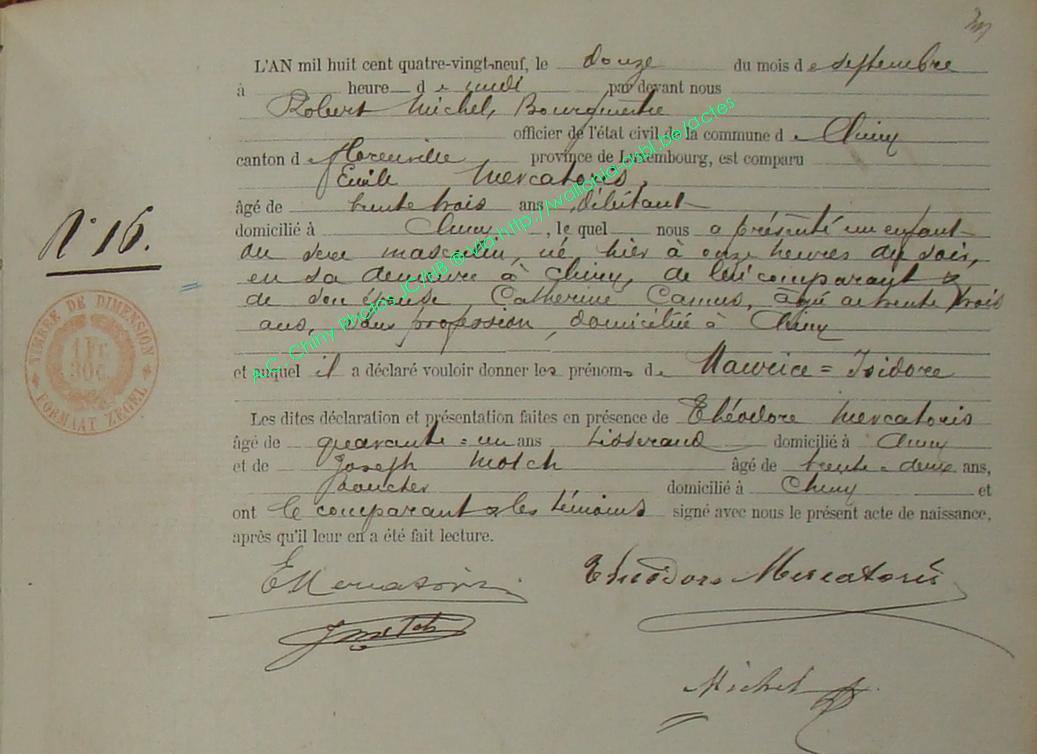 L'AN mil huit cent quatre-vingt-neuf, le douze du mois de septembre
à heure de midi par devant nous
Robert Michel, Bourgmestre
officier de l'état civil de la commune de Chiny
canton de Florenville province de Luxembourg, est comparu
Emile Mercatoris,
âgé de trente trois ans débitant
domicilié à Chiny, lequel nous a présenté un enfant
du sexe masculin, né hier à onze heures du soir,
en sa demeure à Chiny, de lui comparant &
de son épouse Catherine Camus, âgée de trente trois
ans, sans profession, domiciliée à Chiny
et auquel il a déclaré vouloir donner les prénoms de Maurice = Isidore
Les dites déclaration et présentation faites en présence de Théodore Mercatoris
âgé de quarante = un ans tisserand domicilié à Chiny
et de Joseph Motch âgé de trente = deux ans,
boucher domicilié à Chiny et
ont le comparant & les témoins signé avec nous le présent acte de naissance,
après qu'il leur en a été fait lecture.
N° 16.
TIMBRE DE DIMENSION
1 Fr.
30c.
FORMAAT ZEGEL
A.C. Chiny Photos JC/NB ® Via http://wallonia-asbl.be/actes
E Mercatoris
Théodore Mercatoris
J Motch
Michel